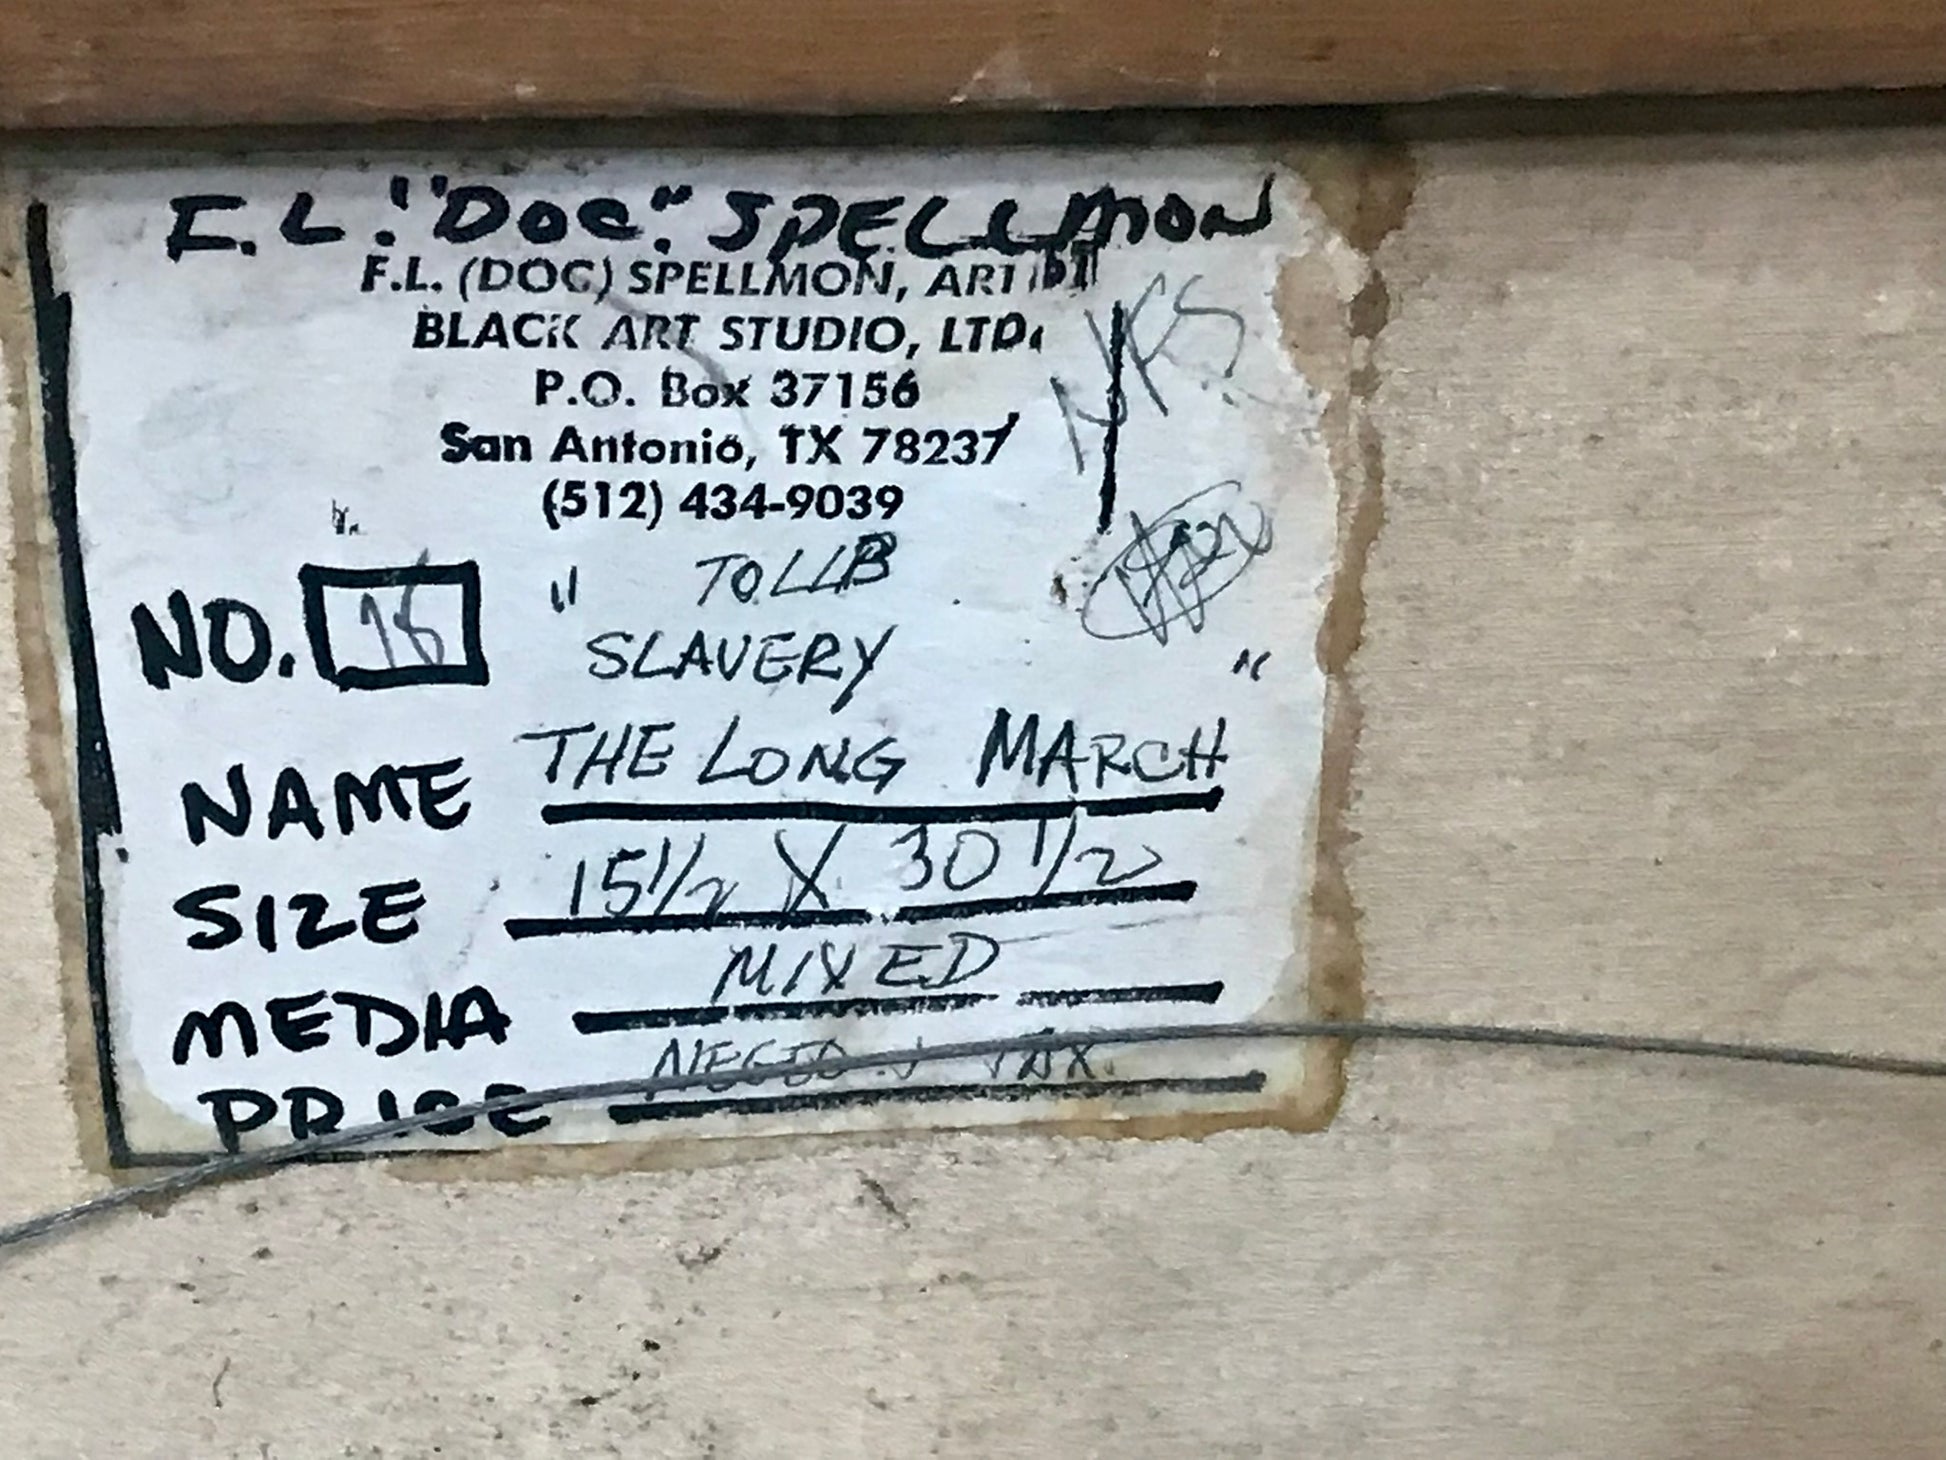 F.L. "DOC" SPELLMON
F.L. (DOC) SPELLMON, ARTIST
BLACK ART STUDIO, LTD.
P.O. Box 37156
San Antonio, TX 78237
(512) 434-9039
NFS
NO.
"
SLAVERY "
NAME THE LONG MARCH
SIZE 15 1/2 X 30 1/2
MEDIA MIXED
PRICE